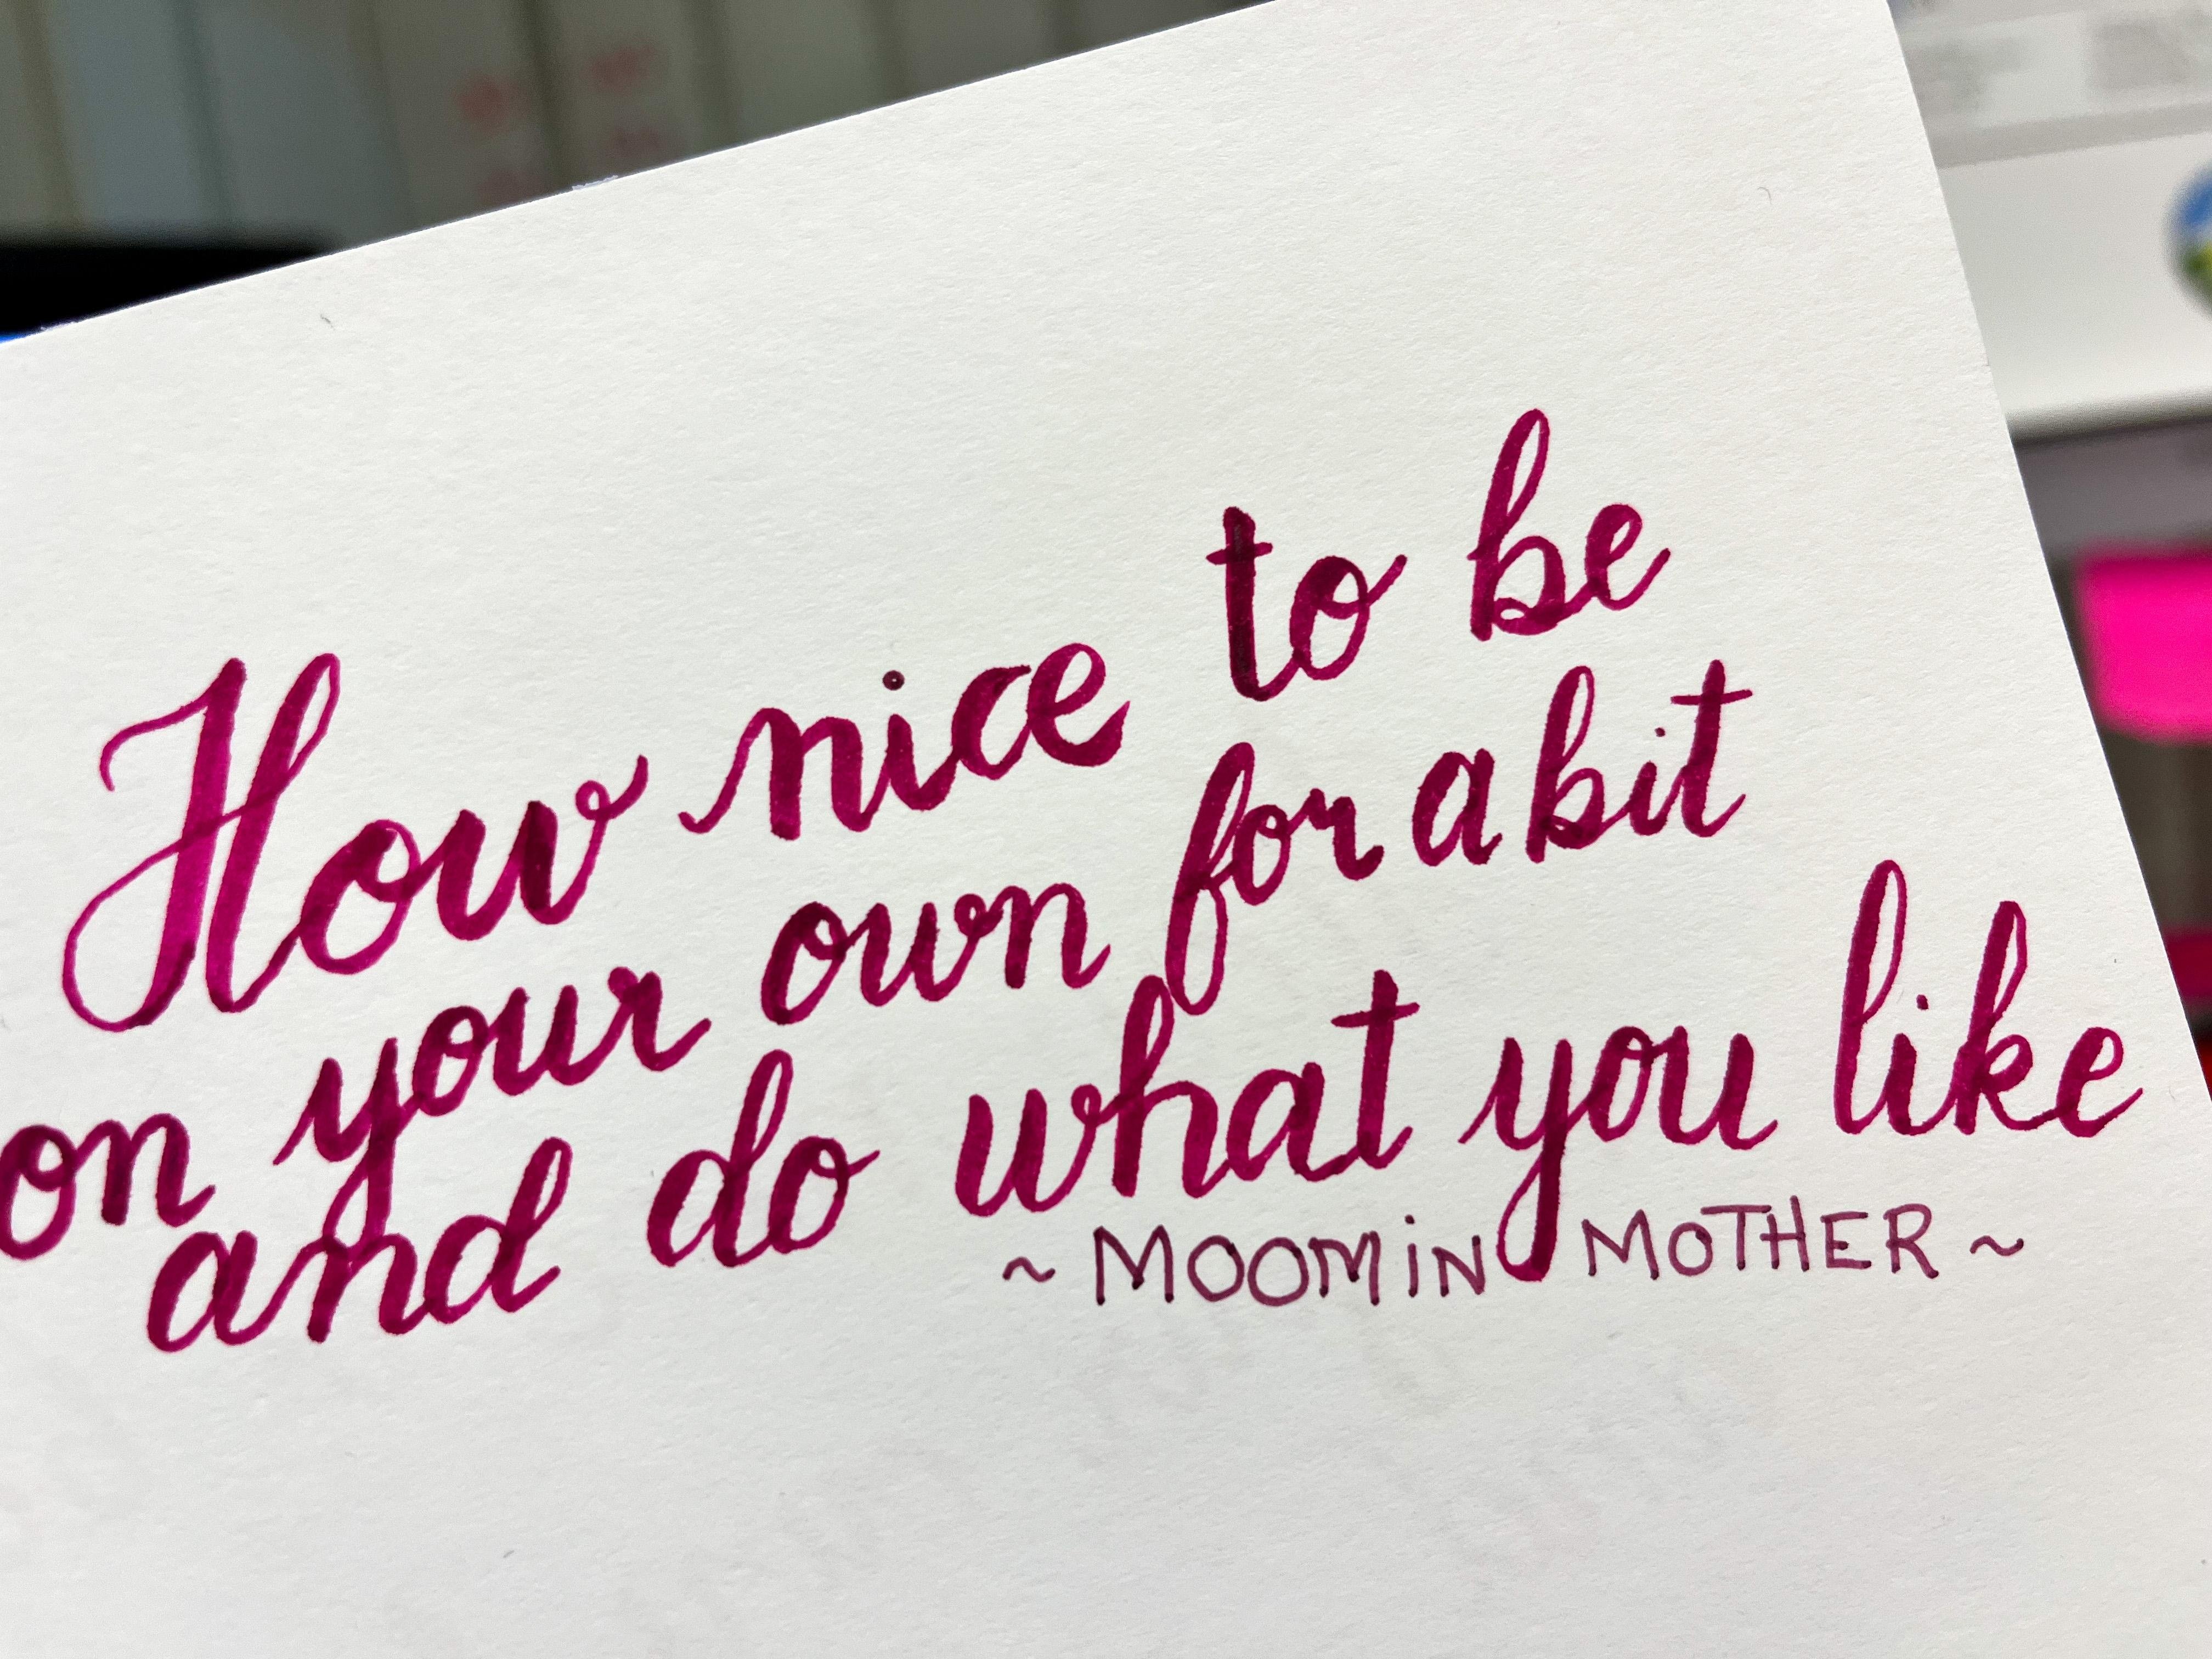 How nice to be
on your own for a bit
and do what you like
~ MOOMiN MOTHER ~